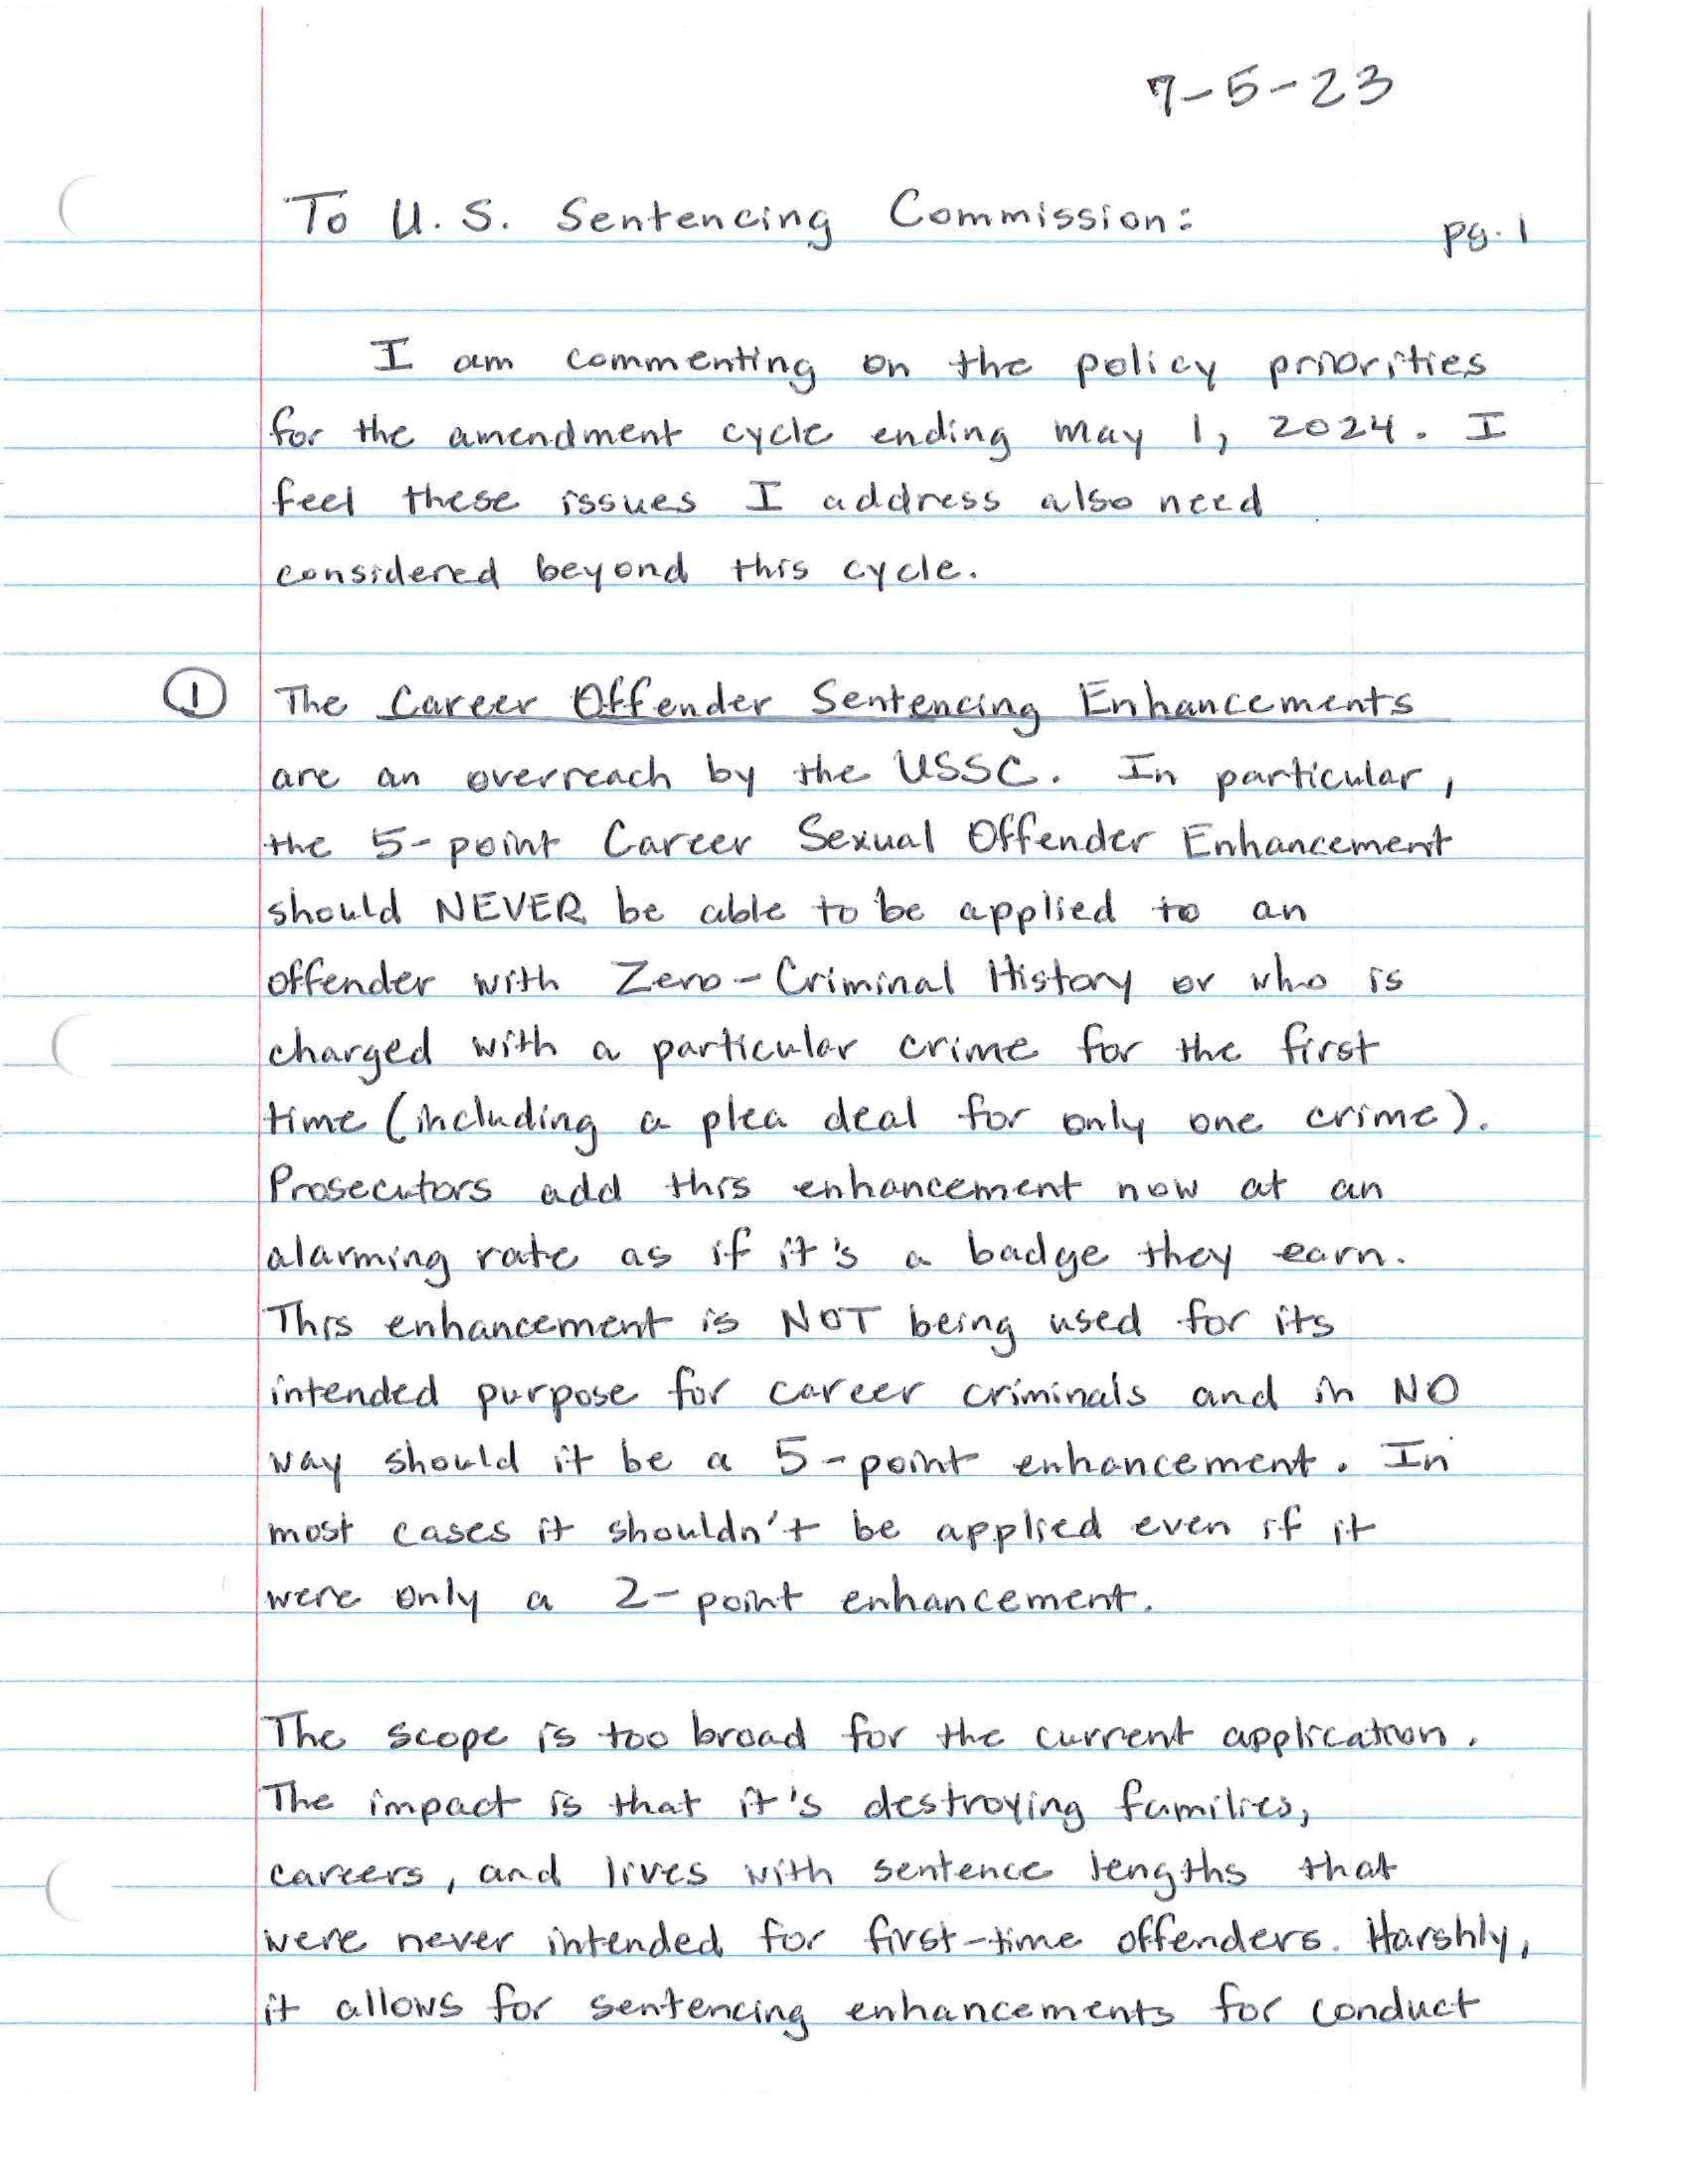 7-5-23
To U.S. Sentencing Commission:
pg. 1
I am commenting on the policy priorities
for the amendment cycle ending may 1, 2024. I
feel these issues I address also need
considered beyond this cycle.
① The Career Offender Sentencing Enhancements
are an overreach by the USSC. In particular,
the 5-point Career Sexual Offender Enhancement
should NEVER be able to be applied to an
offender with Zero-Criminal History or who is
charged with a particular crime for the first
time (including a plea deal for only one crime).
Prosecutors add this enhancement now at an
alarming rate as if it's a badge they earn.
This enhancement is NOT being used for its
intended purpose for career criminals and in NO
way should it be a 5-point enhancement. In
most cases it shouldn't be applied even if it
were only a 2-point enhancement.
The scope is too broad for the current application.
The impact is that it's destroying families,
careers, and lives with sentence lengths that
were never intended for first-time offenders. Harshly,
it allows for sentencing enhancements for conduct